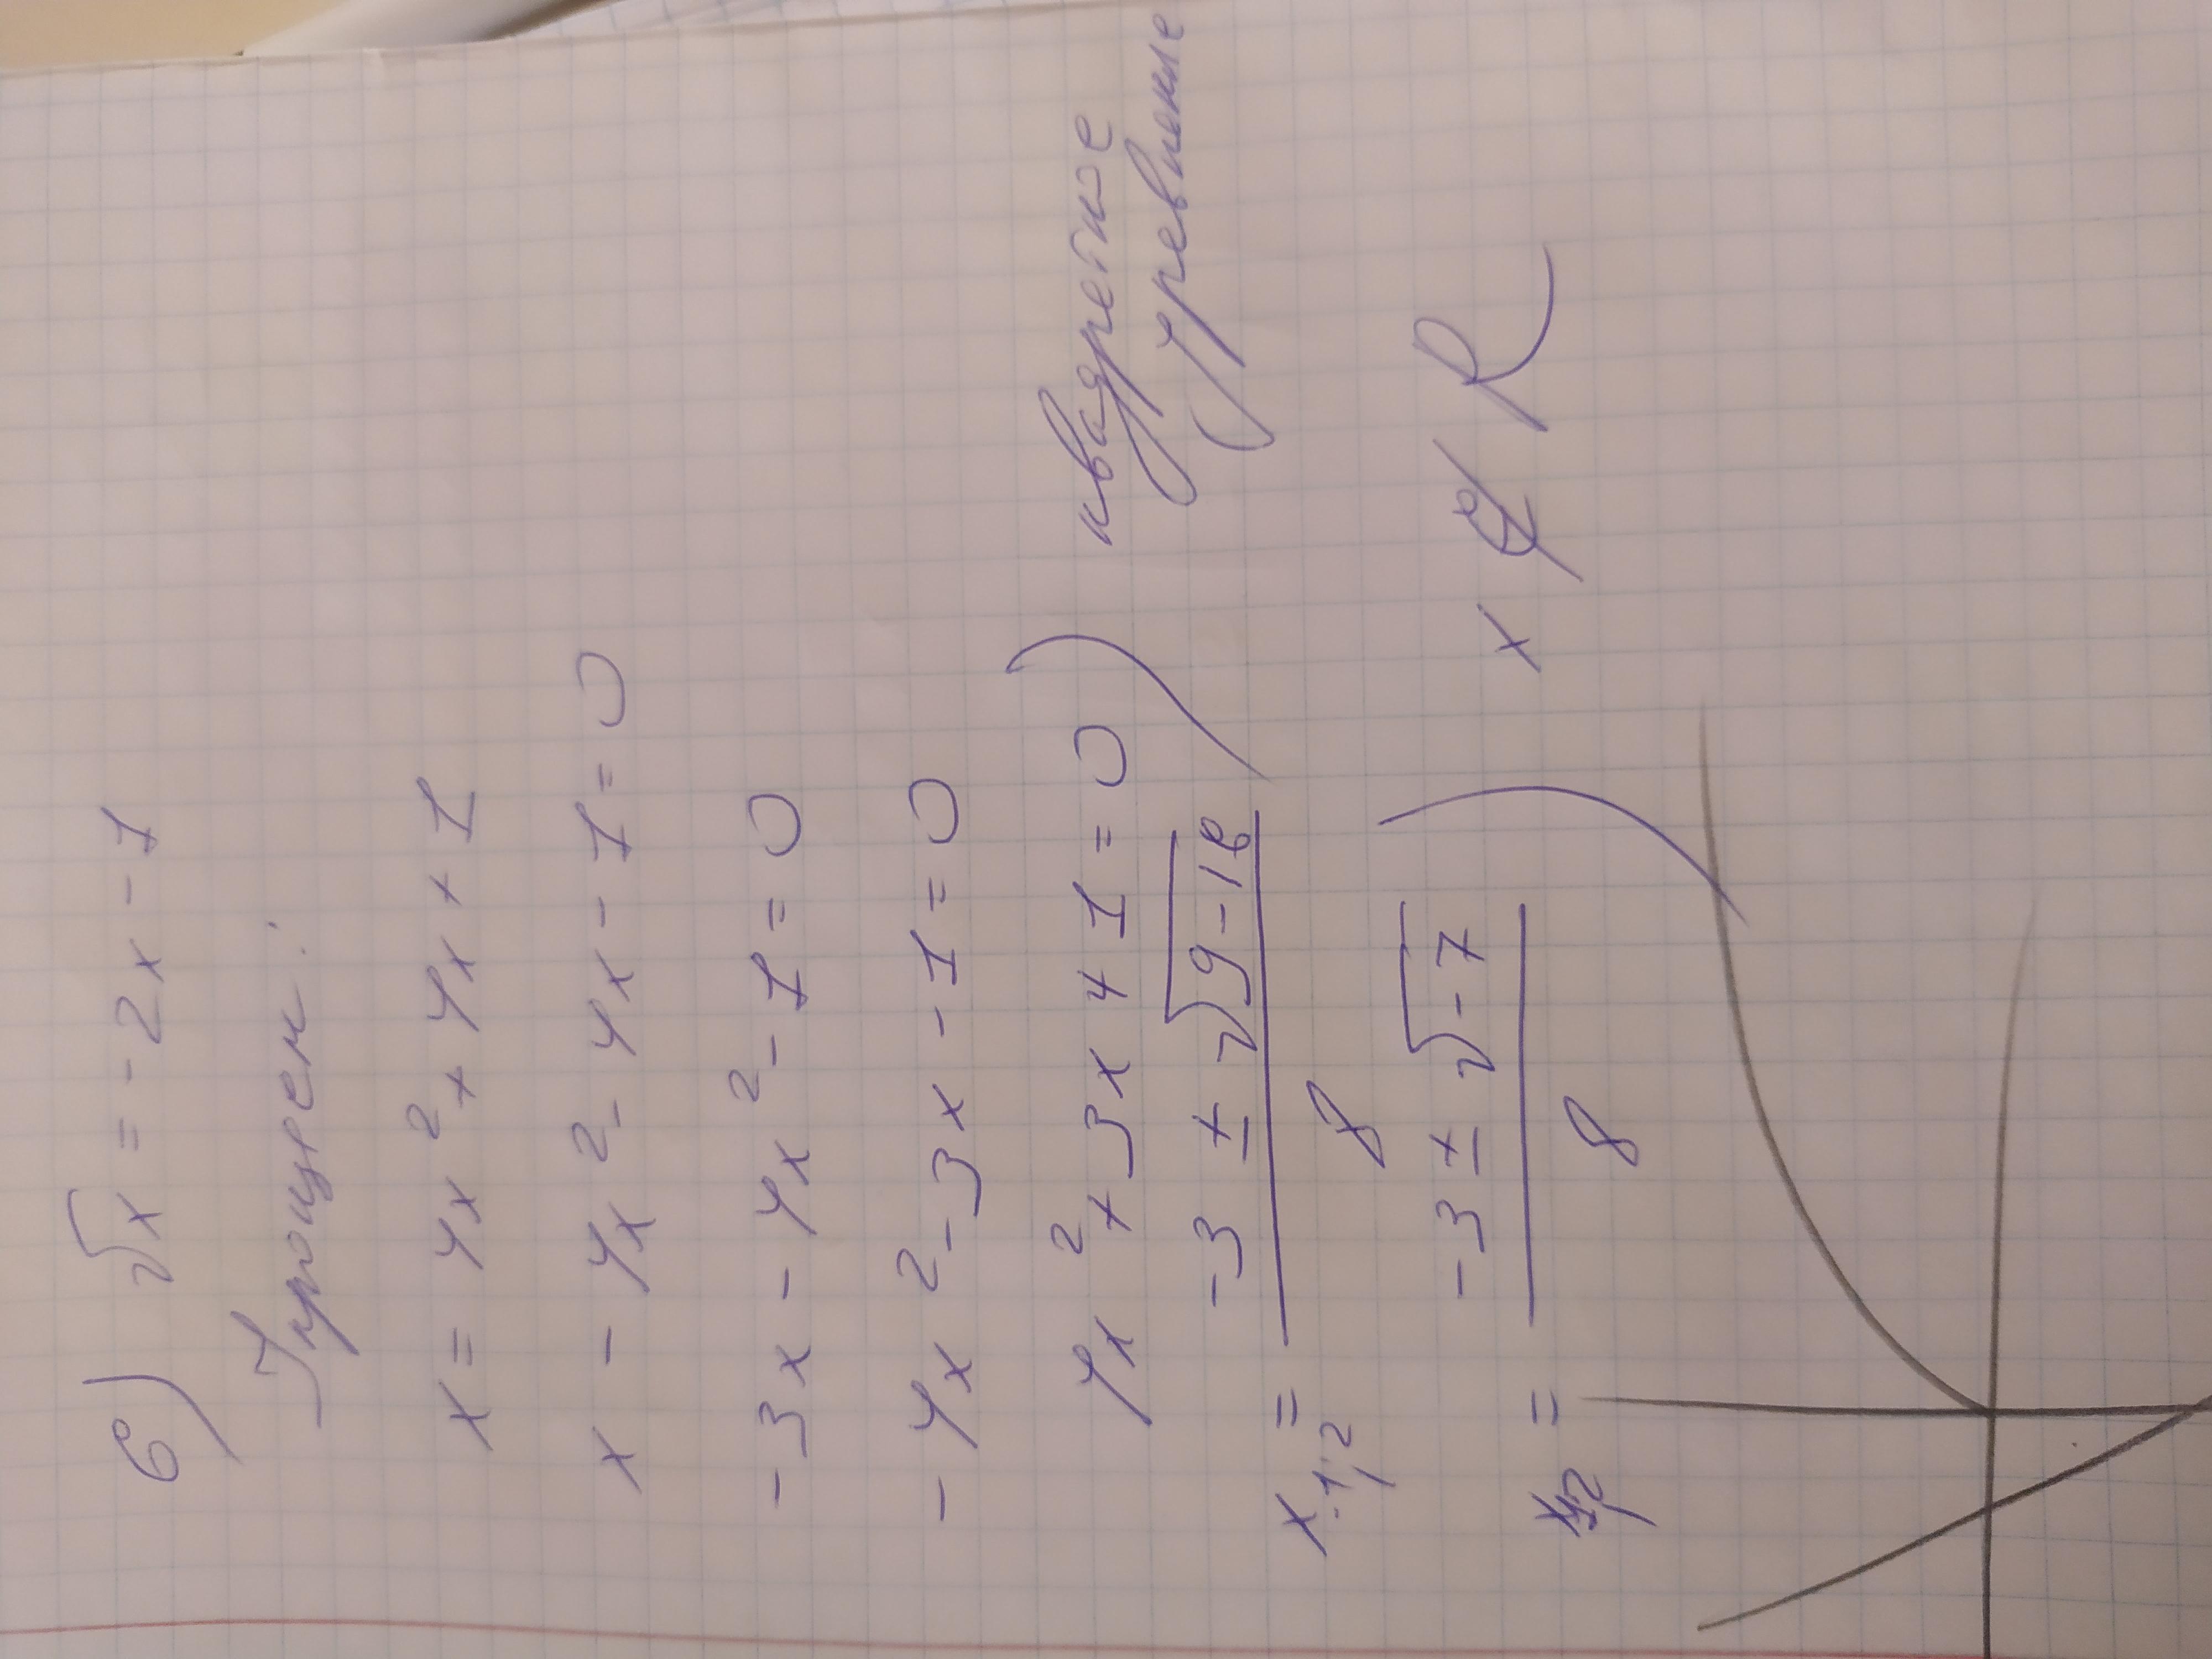 6) √x = -2x - 1
Упрощем:
x = 4x² + 4x + 1
x - 4x² - 4x - 1 = 0
-3x - 4x² - 1 = 0
-4x² - 3x - 1 = 0
4x² + 3x + 1 = 0 ) квадретное уревнение
x₁,₂ = (-3 ± √(9-16))/8
x₁,₂ = (-3 ± √(-7))/8 ) x ∉ R